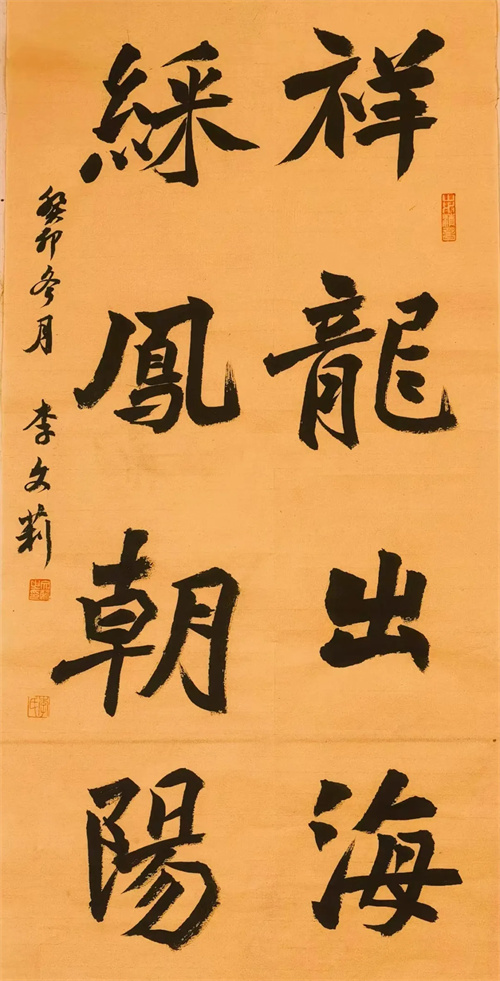 祥龍出海
綵鳳朝陽
癸卯冬月 李文莉